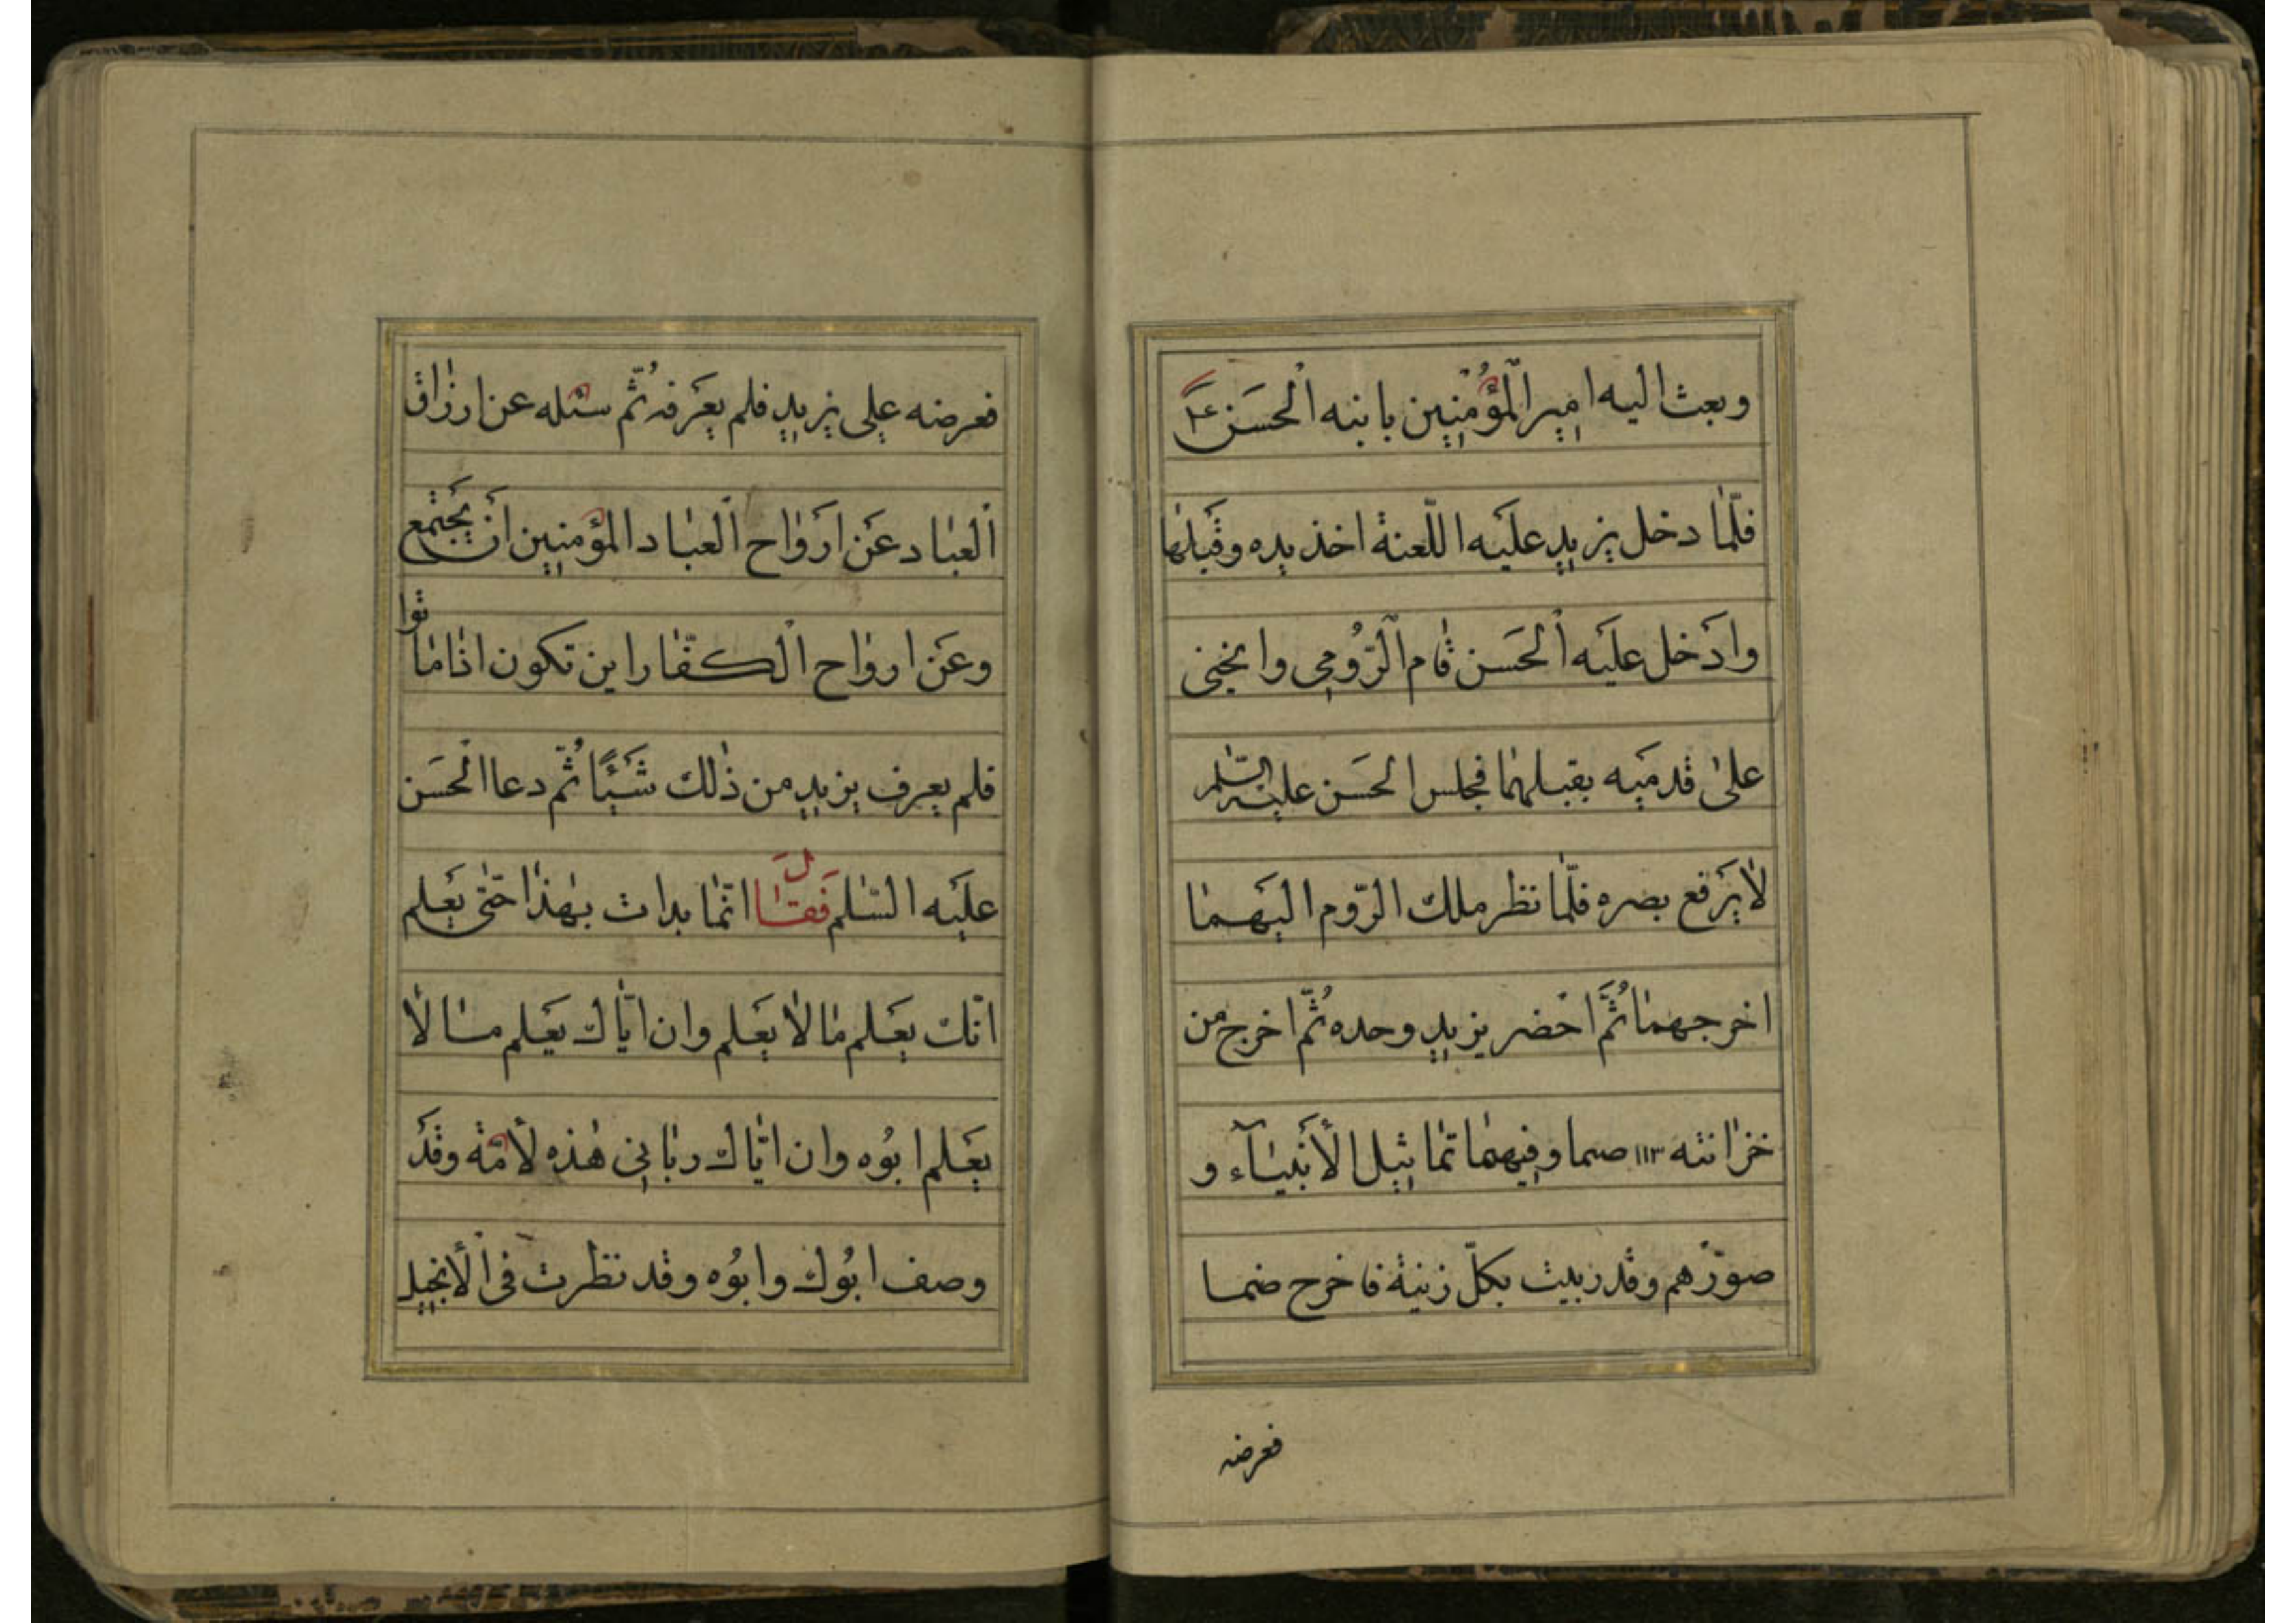 وبعث اليه امير المؤمنين بابنه الحسن ع
فلما دخل يزيد عليه اللعنة اخذ يده وقبلها
وادخل عليه الحسن قام الرومي وانخنى
على قدميه يقبلهما فجلس الحسن عليه السلم
لا يرفع بصره فلما نظر ملك الروم اليهما
اخرجهما ثم احضر يزيد وحده ثم اخرج من
خزانته ١١٣ صما وفيهما تماثيل الأنبياء و
صورهم وقد زينت بكل زينة فاخرج ضما
فعرضه
فعرضه على يزيد فلم يعرفه ثم سئله عن ارزاق
العباد عن ارواح العباد المؤمنين ان يجتمع
وعن ارواح الكفار اين تكون اذا ماتوا
فلم يعرف يزيد من ذلك شيئا ثم دعا الحسن
عليه السلم فقال انما بدات بهذا حتى يعلم
انك يعلم ما لا يعلم وان اباك يعلم ما لا
يعلم ابوه وان اباك رباني هذه لأمة وقد
وصف ابوك وابوه وقد نظرت في الأنجيل